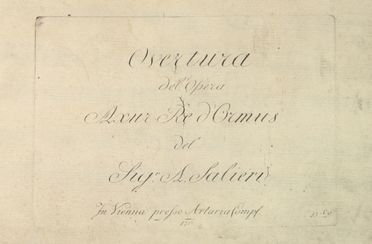 Overtura
del Opera
Axur Re d'Ormus
del
Sigr. A. Salieri
In Vienna presso Artaria Comp.